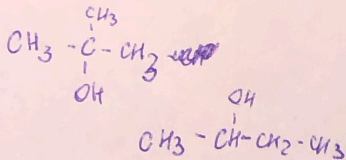 CH3
CH3 - C - CH3
OH
OH
CH3 - CH - CH2 - CH3